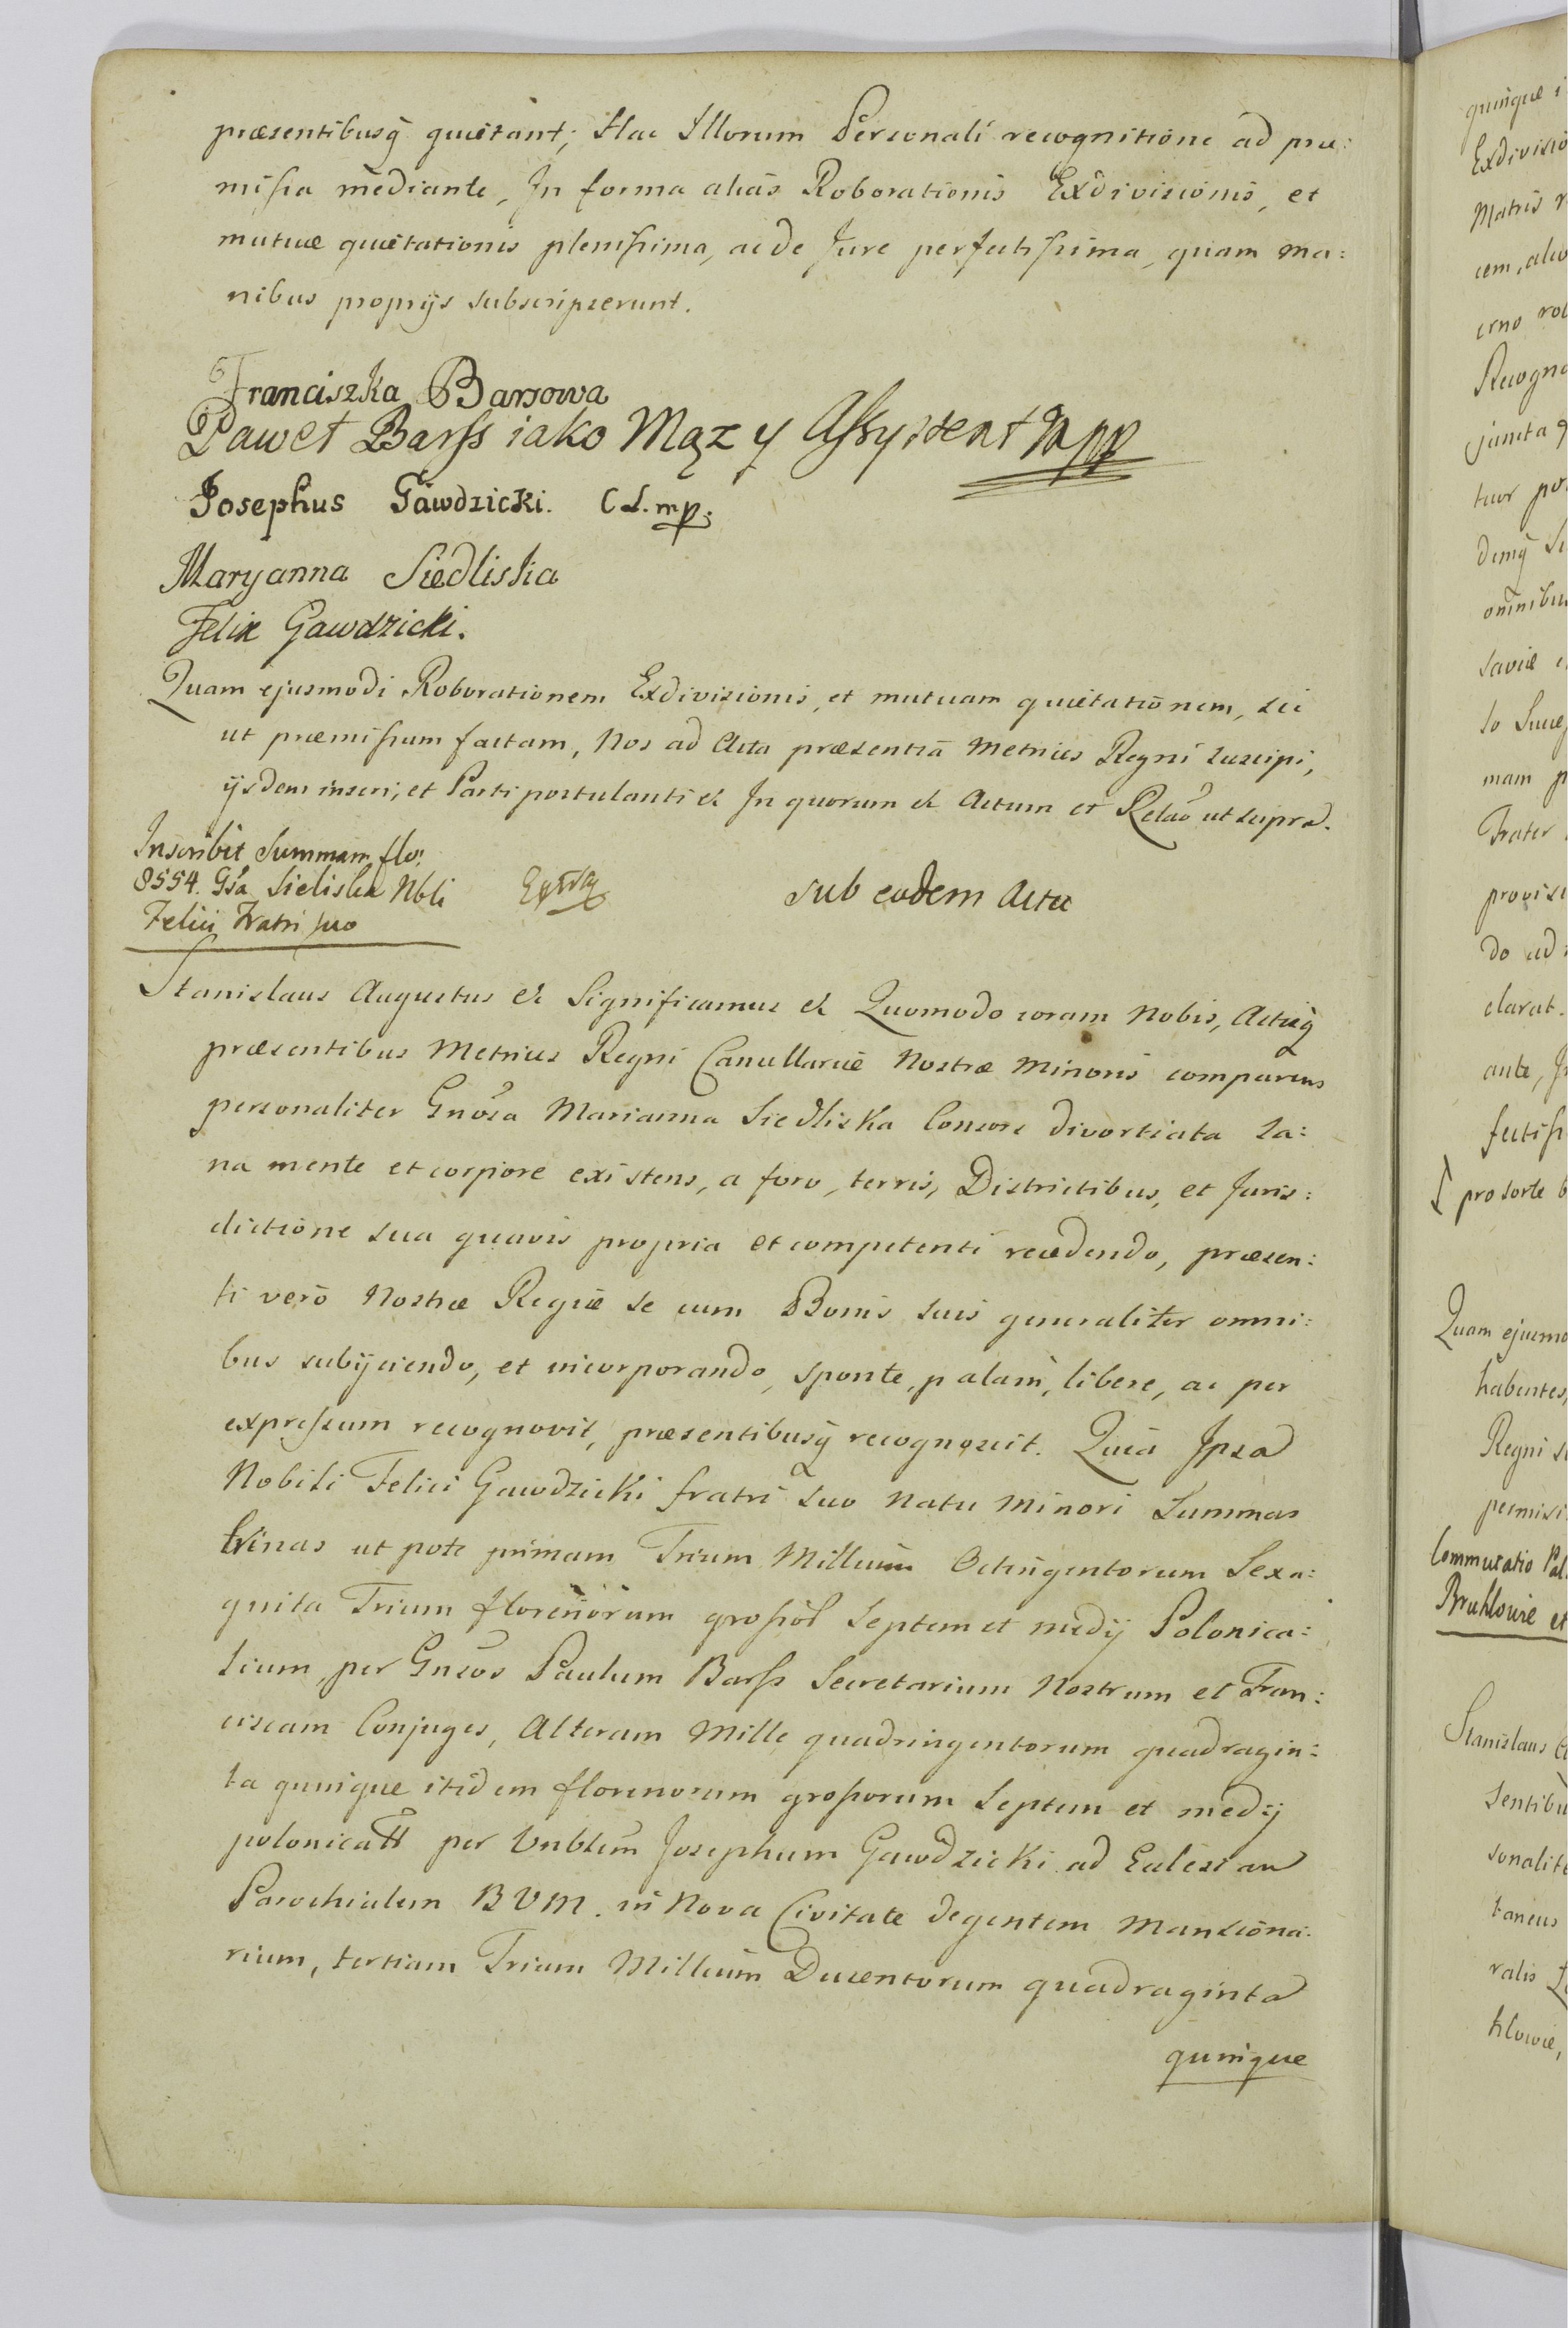 præsentibusq̃ quietant; Hac Illorum Personali recognitione ad præ:
missa mediante, In forma alias Roborationis Exdivisionis, et
mutuæ quietationis plenissima, ac de Jure perfectissima, quam ma:
nibus proprijs subscripserunt.
Franciszka Barsowa
Paweł Barss iako Mąz y Assystent mpp
Josephus Gawdzicki. C S. mp.
Maryanna Siedliska
Felix Gawdzicki.
Quam ejusmodi Roborationem Exdivisionis, et mutuam quietationem, sic
ut præmissum factam, Nos ad Acta præsentia Metrices Regni suscipi,
ijsdem inseri, et Parti postulanti & In quorum & Actum et Relaõ ut supra.
Inscribit Summam flor
8554. Gsa Sieliska Nbli
Felici Fratri suo
sub eodem Actu
Stanislaus Augustus & Significamus & Quomodo coram Nobis, Actisq̃
præsentibus Metrices Regni Cancellariæ Nostræ Minoris comparens
personaliter Gnosa Marianna Siedliska Consors divortiata sa:
na mente et corpore existens, a foro, terris, Districtibus, et Juris:
dictione sua quavis propria et competenti recedendo, præsen:
ti vero Nostræ Regiæ se cum Bonis suis generaliter omni:
bus subijciendo, et incorporando, sponte, palam, libere, ac per
expressum recognovit, præsentibusq̃ recognoscit. Quia Ipsa
Nobili Felici Gawdzicki fratri suo natu Minori Summas
trinas ut pote primam Trium Millium Octingentorum Sexa:
ginta Trium florenorum grossor Septem et medij Polonica:
lium, per Gnsos Paulum Barss Secretarium Nostrum et Fran:
ciscam Conjuges, Alteram Mille quadringentorum quadragin:
ta quinque itidem florenorum grossorum Septem et medij
polonicall per Vnblem Josephum Gawdzicki ad Eclesiam
Parochialem B V M. in Nova Civitate degentem Mansiona:
rium, tertiam Trium Millium Ducentorum quadraginta
quinque
quinque
Exdivisio
Matris
cem,
Recogno
juncta
omnibus
mam
Frater
do ad
clarat.
pro sorte
Quam ejusmo
habentes,
Regni
Commutatio Pal
Bruhlowie et
Stanislaus
sentibu
sonalite
taneus
ralis